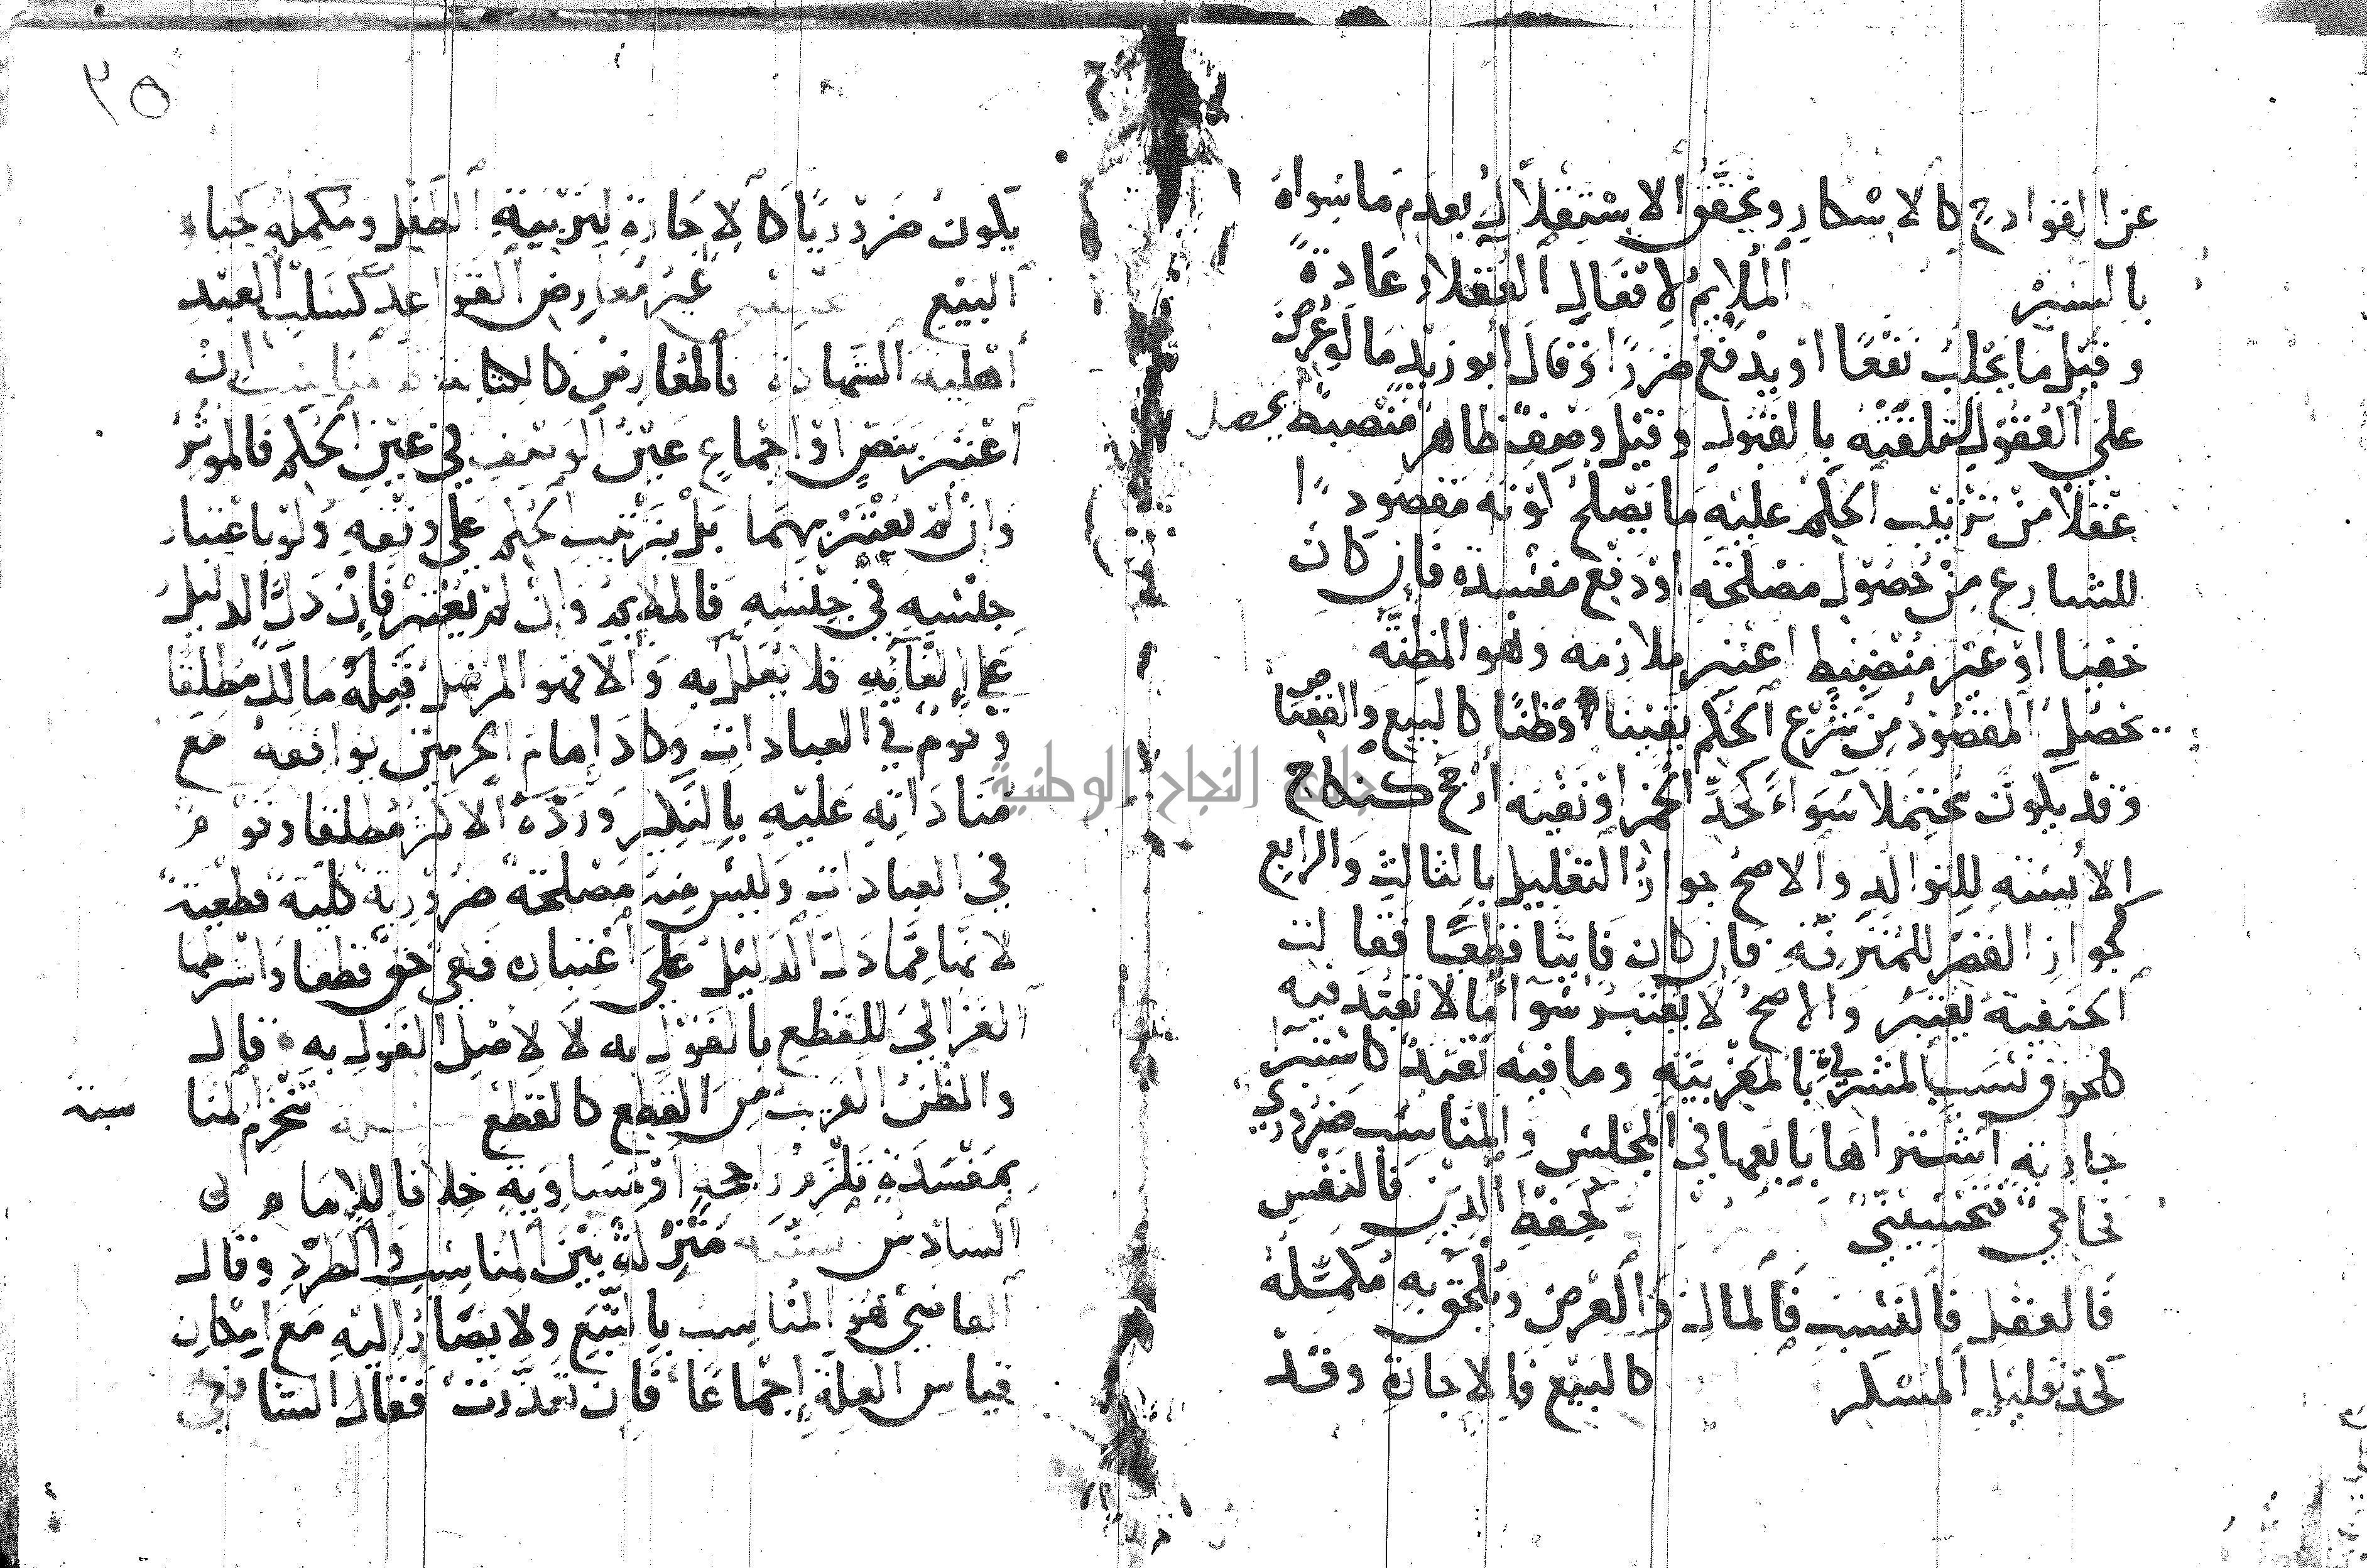 عن القوادح كالاسكار ويحقق الاستقلال بعدم ما سواه
بالسبر الملايم لافعال العقلاء عادة
وقيل ما يجلب نفعا او يدفع ضررا وقال ابو زيد ما لو عرض
على العقول لتلقته بالقبول وقيل وصف ظاهر منضبط يحصل
عقلا من ترتيب الحكم عليه ما يصلح كونه مقصودا
للشارع من حصول مصلحة او دفع مفسدة فان كان
خفيا او غير منضبط اعتبر ملازمه وهو المظنة
يحصل المقصود من شرع الحكم يقينا او ظنا كالبيع والقصاص
وقد يكون محتملا سواء كحد الخمر او نفيه ارجح كنكاح
الآيسة للتوالد والاصح جواز التعليل بالثالث والرابع
كجواز القصر للمترفه فان كان فايتا قطعيا فقالت
الحنفية يعتبر والاصح لا يعتبر سواء ما لا تعبد فيه
كلحوق نسب المشرقي بالمغربية وما فيه تعبد كاستبراء
جارية اشتراها بايعها في المجلس والمناسب ضروري
فحاجي فتحسيني لحفظ الدين فالنفس
فالعقل فالنسب فالمال والعرض ويلحق به مكمله
كحد قليل المسكر كالبيع فالاجارة وقد
٣٥
يكون ضروريا كالاجارة لتربية الطفل ومكمله كخيار
البيع غير معارض القواعد كسلب العبد
اهلية الشهادة والمعارض كالكتابة المناسب ان
اعتبر بنص او اجماع عين الوصف في عين الحكم فالموثر
وان لم يعتبر بهما بل بترتيب الحكم على وفقه ولو باعتبار
جنسه في جنسه فالملايم وان لم يعتبر فان دل الدليل
على الغائه فلا يعلل به والا فهو المرسل قبله مالك مطلقا
وقوم في العبادات وكاد امام الحرمين يوافقه مع
مناداته عليه بالنكير ورده الاكثر مطلقا وقوم
في العبادات وليس منه مصلحة ضرورية كلية قطعية
لانها مما دل الدليل على اعتباره فهي حق قطعا واشترطها
الغزالي للقطع بالقول به لا لاصل القول به قال
والظن القريب من القطع كالقطع تنخرم المنا
سبة
بمفسدة تلزم راجحة او مساوية خلافا للامام
السادس منزلة بين المناسب والطرد وقال
القاضي هو المناسب بالتبع ولا يصار اليه مع امكان
قياس العلة اجماعا فان تعذرت فقال الشافعي
جامعة النجاح الوطنية